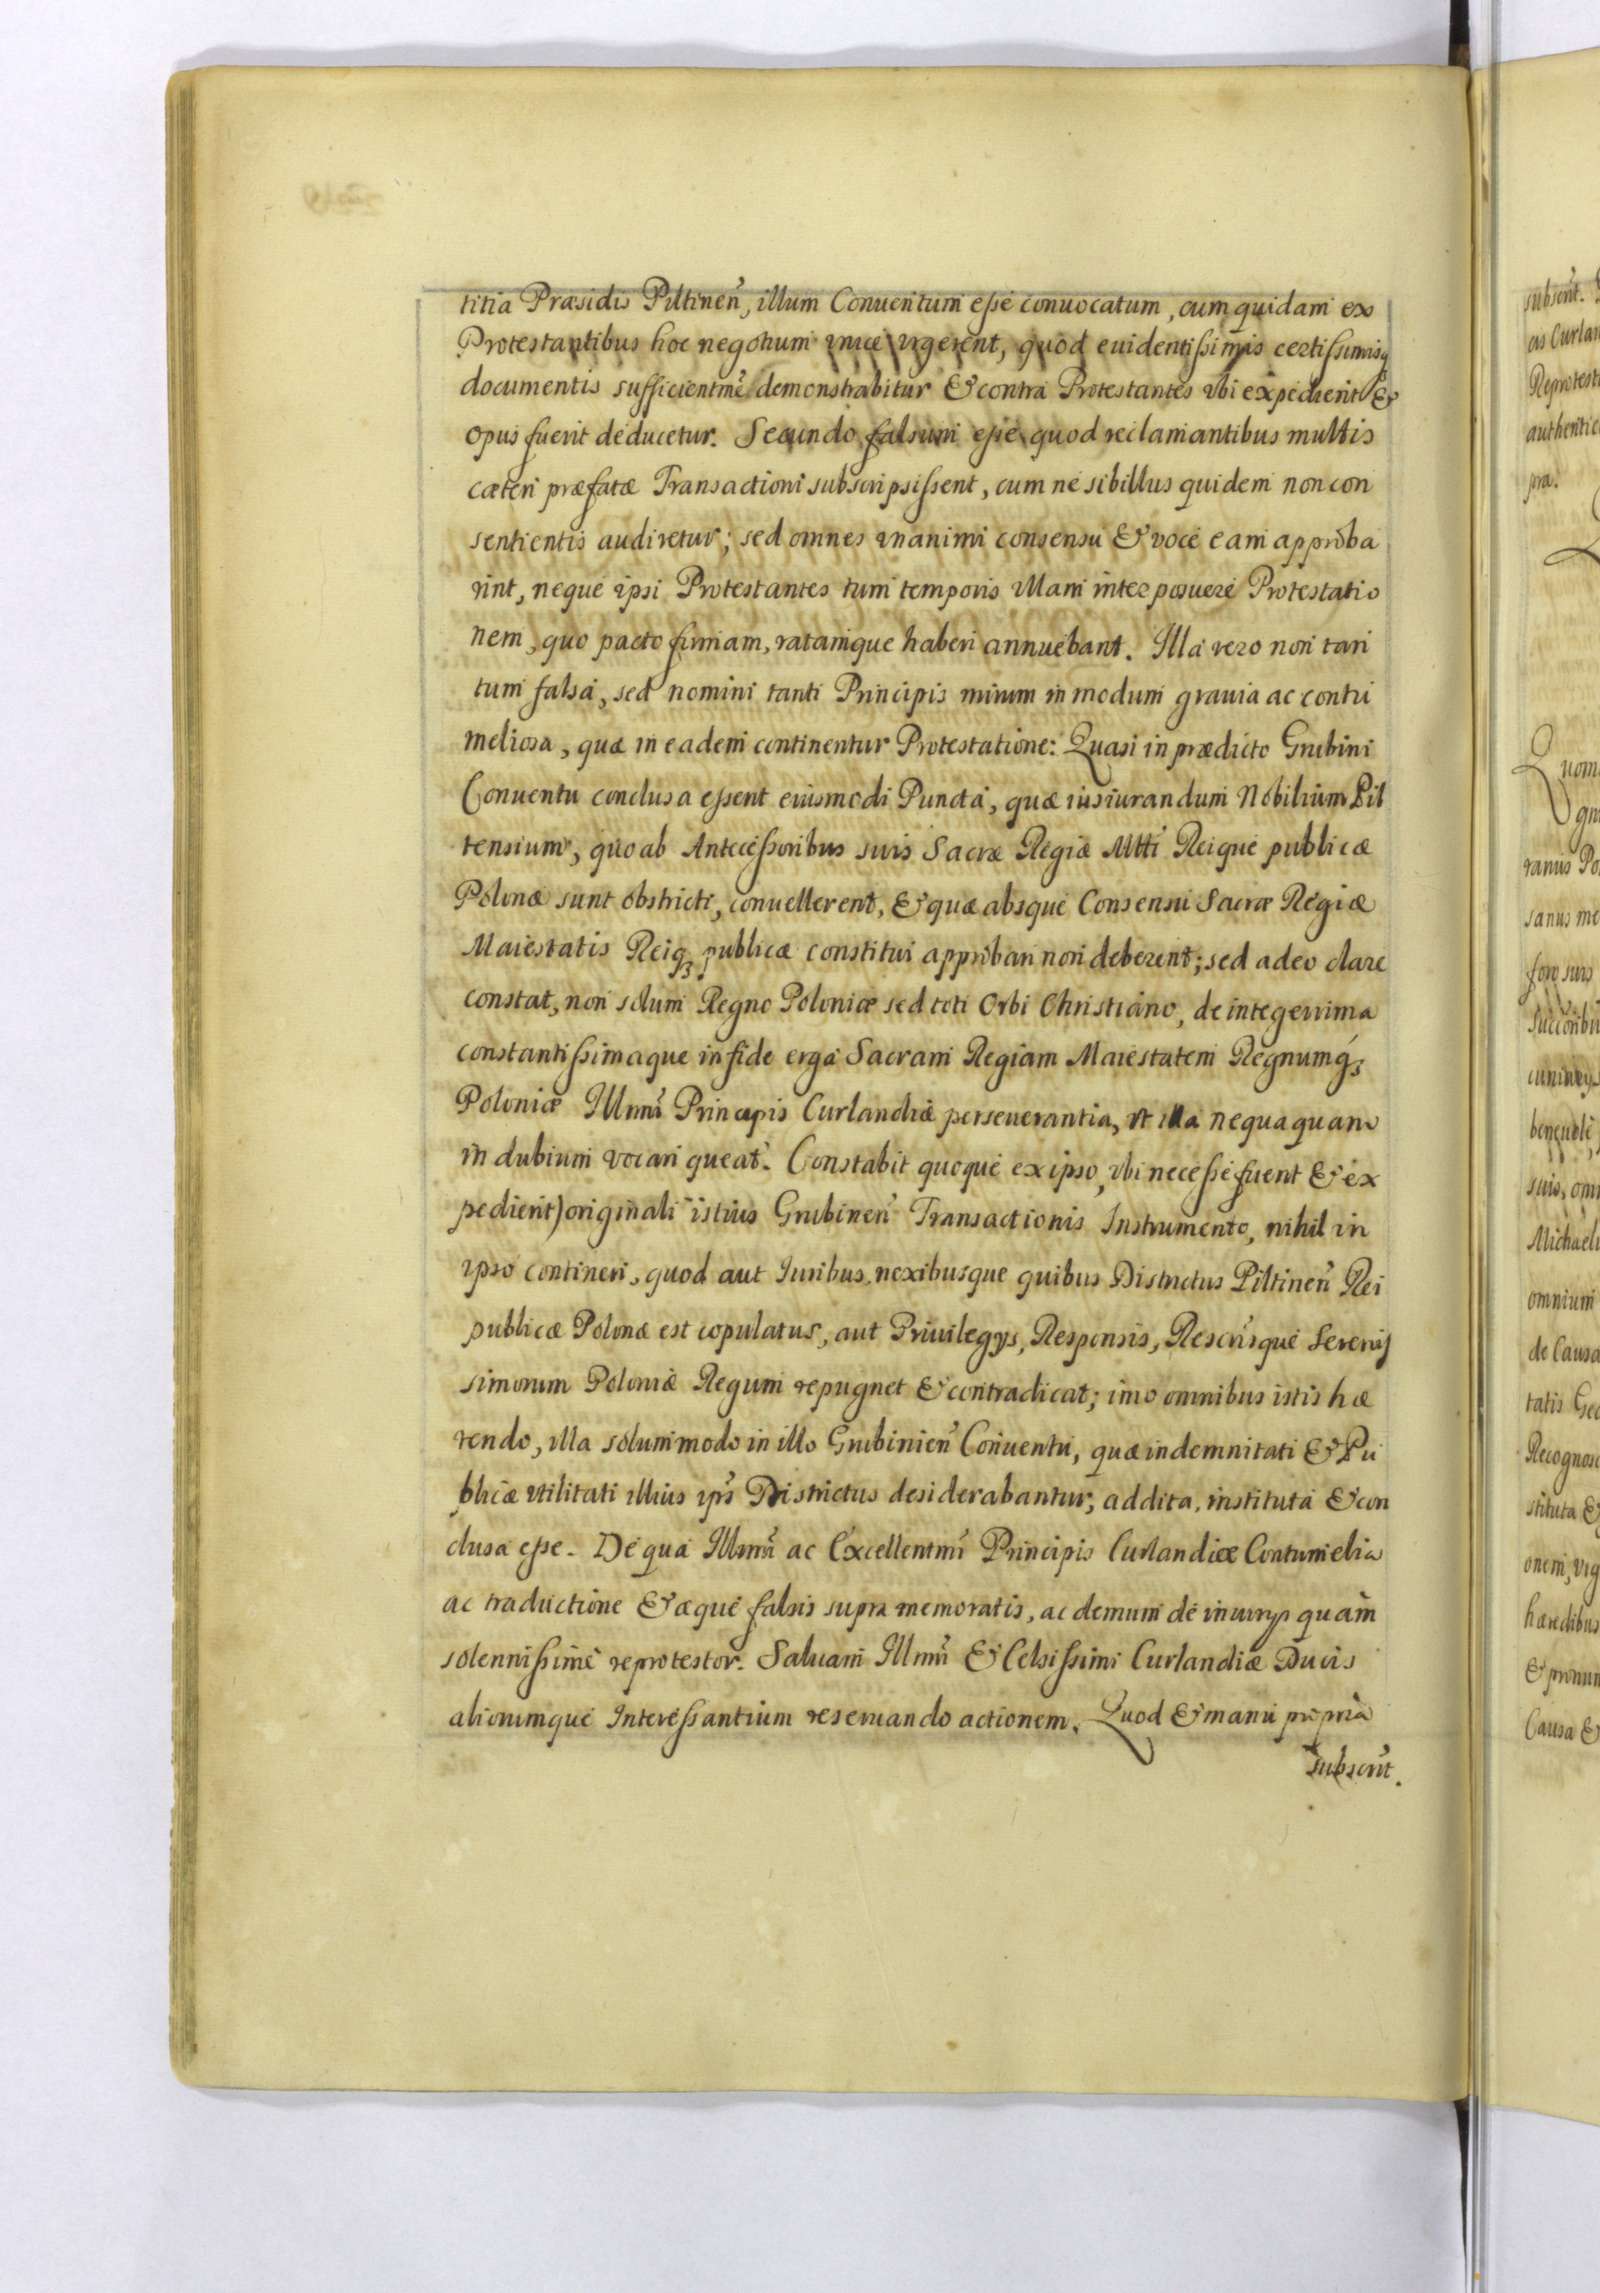 titia Præsidis Piltineñ, illum Conuentum eße conuocatum, cum quidam ex
Protestantibus hoc negotium vnice vrgerent, quod euidentißimis certißimisq
documentis sufficientmè demonstrabitur & contra Protestantes vbi expedierit &
opus fuerit deducetur. Secundo falsum eße quod reclamantibus multis
cæteri præfatæ Transactioni subscripsißent, cum ne sibillus quidem non con
sentientis audiretur; sed omnes vnanimi consensu & voce eam approba
rint, neque ipsi Protestantes tum temporis vllam interposuere Protestatio
nem, quo pacto firmam, ratamque haberi annuebant. Illa vero non tan
tum falsa, sed nomini tanti Principis mirum in modum grauia ac contu
meliosa, quæ in eadem continentur Protestatione: Quasi in prædicto Grubini
Conuentu conclusa eßent eiusmodi Puncta, quæ iusiurandum Nobilium Pil
tensium, quo ab Anteceßoribus suis Sacræ Regiæ Mtti Reique publicæ
Polonæ sunt obstricti, conuellerent, & quæ absque Consensu Sacræ Regiæ
Maiestatis Reiq3 publicæ constitui approbari non deberent; sed adeo clare
constat, non solum Regno Poloniæ sed toti Orbi Christiano, de integerrima
constantißimaque in fide erga Sacram Regiam Maiestatem Regnumq3
Poloniæ Illmi Principis Curlandiæ perseuerantia, vt illa nequaquam
in dubium vocari queat. Constabit quoque ex ipso, vbi neceße fuerit & ex
pedierit) originali istius Grubineñ Transactionis Instrumento, nihil in
ipso contineri, quod aut Iuribus, nexibusque quibus Districtus Piltineñ Rei
publicæ Polonæ est copulatus, aut Priuilegys, Responsis, Rescrisque Serenis
simorum Poloniæ Regum repugnet & contradicat; imo omnibus istis hæ
rendo, illa solummodo in illo Grubinieñ Conuentu, quæ indemnitati & Pu
blicæ vtilitati illius ips Districtus desiderabantur, addita, instituta & con
clusa eße. De qua Illmi ac Excellentmi Principis Curlandiæ Contumelia
ac traductione & æque falsis supra memoratis, ac demum de iniurys quam
solennißime reprotestor. Saluam Illmi & Celsißimi Curlandiæ Ducis
aliorumque Intereßantium reseruando actionem. Quod & manu propria
subscrit.